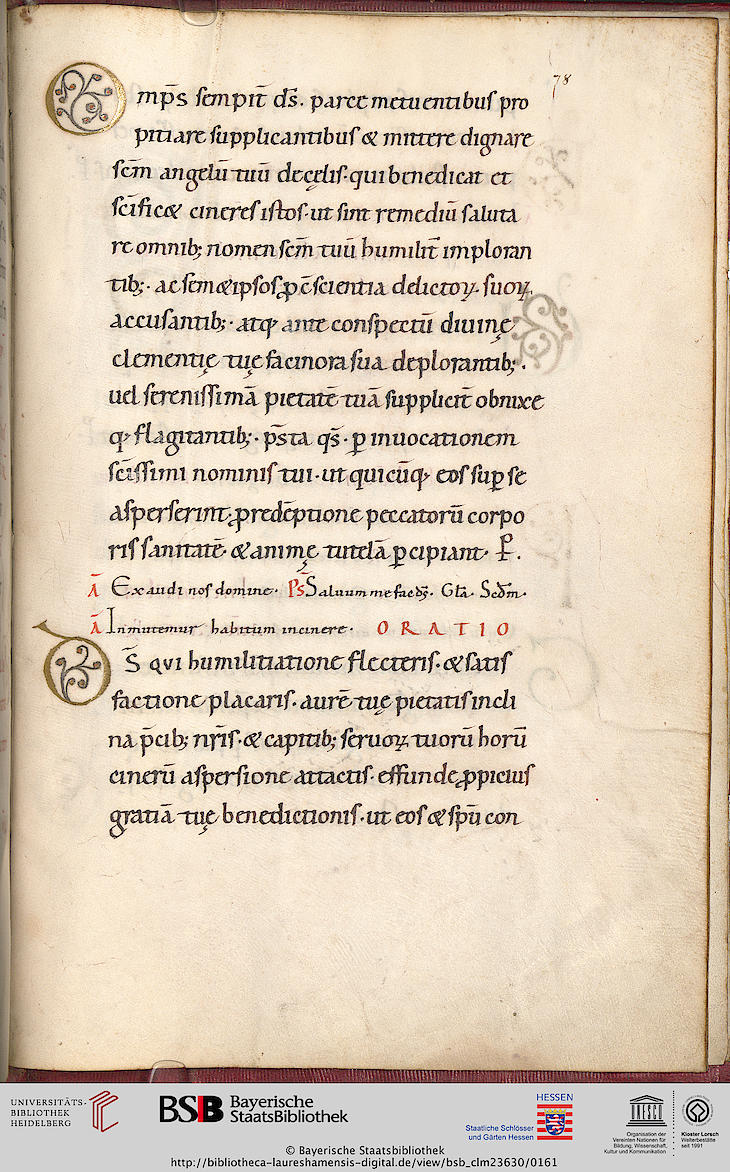 78
Omp̄s sempit̄ d̄s. parce metuentibus pro
pitiare supplicantibus & mittere dignare
sc̄m angelū tuū de cęlis · qui benedicat et
sc̄ific& cineres istos · ut sint remediū saluta
re omnib; nomen sc̄m tuū humilit̄ imploran
tib; · ac sem&ipsos ꝓ c̄scientia delictoꝝ suoꝝ
accusantib; · atq; ante conspectū diuinę
clementię tuę facinora sua deplorantib; ·
uel serenissimā pietatē tuā supplicit̄ obnixe
q; flagitantib; · p̄sta q̄s · ꝑ inuocationem
sc̄issimi nominis tui · ut quicūq; eos suꝑ se
asperserint · ꝓ redēptione peccatorū corpo
ris sanitatē · & animę tutelā ꝑcipiant · P̱.
Ā Exaudi nos domine · Ps̄ Saluum me fac ds̄ · Gl̄a · Scd̄m ·
Ā Inmutemur habitum in cinere · ORATIO
DS̄ qui humilitiatione flecteris · & satis
factione placaris · aurē tuę pietatis incli
na p̄cib; nr̄is · & capitib; seruoꝝ tuorū horū
cinerū aspersione attactis · effunde ꝓpicius
gratiā tuę benedictionis · ut eos & sp̄u con
UNIVERSITÄTS-
BIBLIOTHEK
HEIDELBERG
BSB Bayerische
StaatsBibliothek
HESSEN
Staatliche Schlösser
und Gärten Hessen
UNESCO
Organisation der
Vereinten Nationen für
Bildung, Wissenschaft,
Kultur und Kommunikation
Kloster Lorsch
Welterbestätte
seit 1991
© Bayerische Staatsbibliothek
http://bibliotheca-laureshamensis-digital.de/view/bsb_clm23630/0161